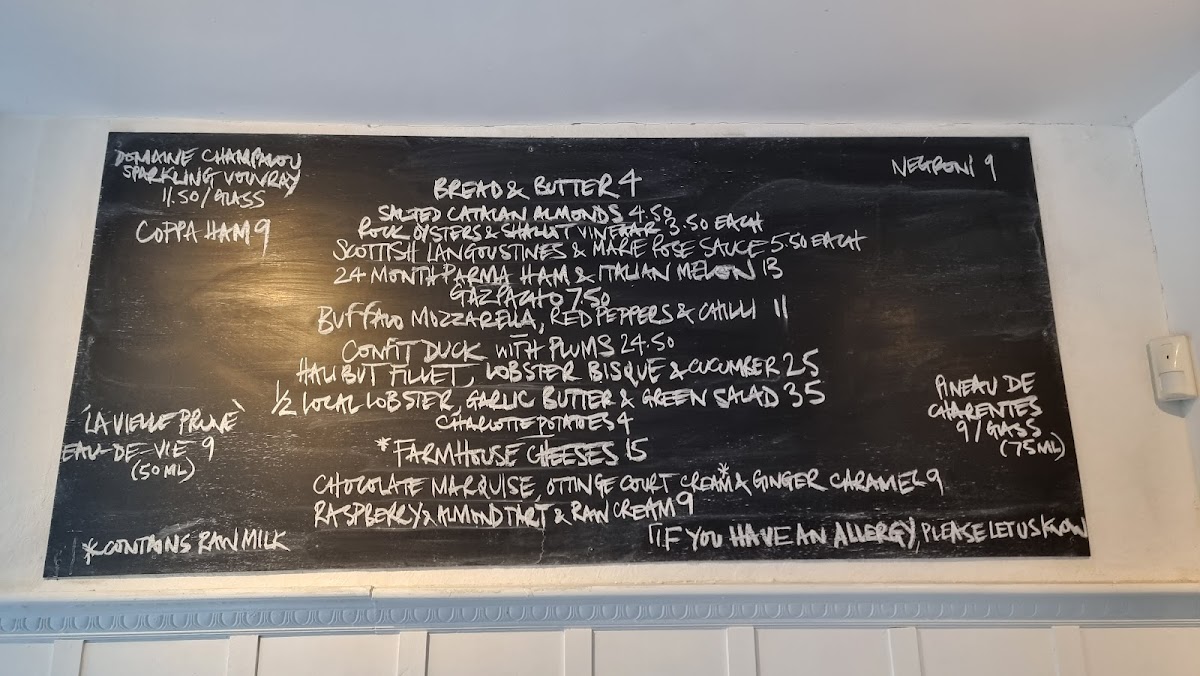 DOMAINE CHAMPALOU
SPARKLING VOUVRAY
11.50/GLASS
COPPA HAM 9
NEGRONI 9
BREAD & BUTTER 4
SALTED CATALAN ALMONDS 4.50
ROCK OYSTERS & SHALLOT VINEGAR 3.50 EACH
SCOTTISH LANGOUSTINES & MARIE ROSE SAUCE 5.50 EACH
24 MONTH PARMA HAM & ITALIAN MELON 13
GAZPACHO 7.50
BUFFALO MOZZARELLA, RED PEPPERS & CHILLI 11
CONFIT DUCK WITH PLUMS 24.50
HALIBUT FILLET, LOBSTER BISQUE & CUCUMBER 25
1/2 LOCAL LOBSTER, GARLIC BUTTER & GREEN SALAD 35
CHARLOTTE POTATOES 4
*FARMHOUSE CHEESES 15
CHOCOLATE MARQUISE, OTTINGE COURT CREAM* & GINGER CARAMEL 9
RASPBERRY & ALMOND TART & RAW CREAM 9
'LA VIELLE PRUNE'
EAU-DE-VIE 9
(50ML)
PINEAU DE
CHARENTES
9/GLASS
(75ML)
*CONTAINS RAW MILK
!!IF YOU HAVE AN ALLERGY, PLEASE LET US KNOW